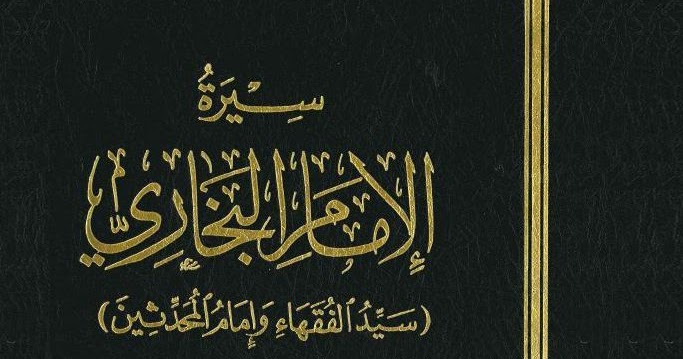 سِيْرَةُ
الإِمَامِ الْبُخَارِيِّ
(سَيِّدُ الفُقَهَاءِ وَإِمَامُ المُحَدِّثِينَ)